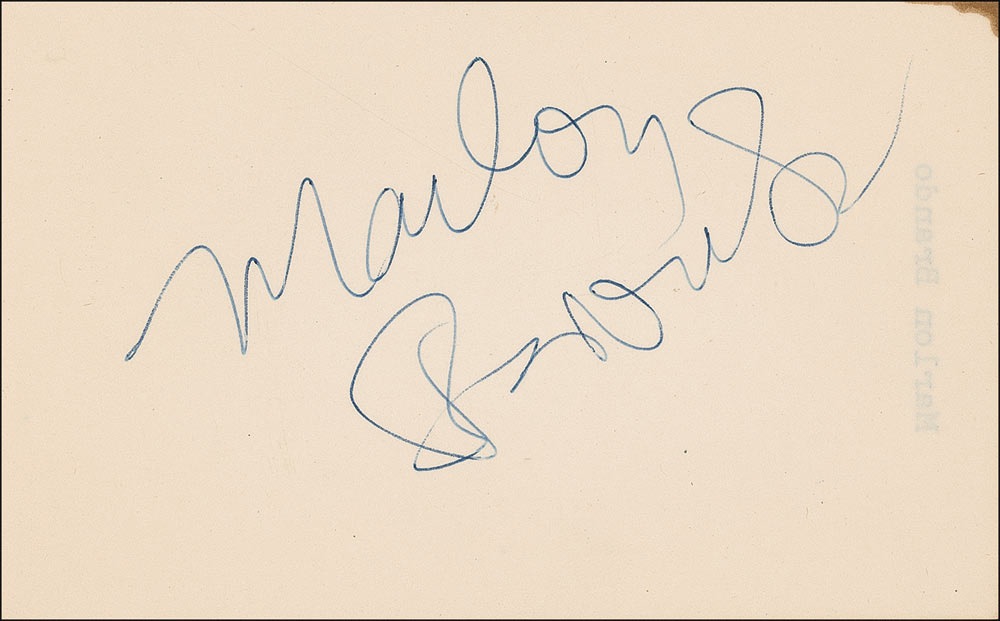 Marlon
Brando
Marlon Brando